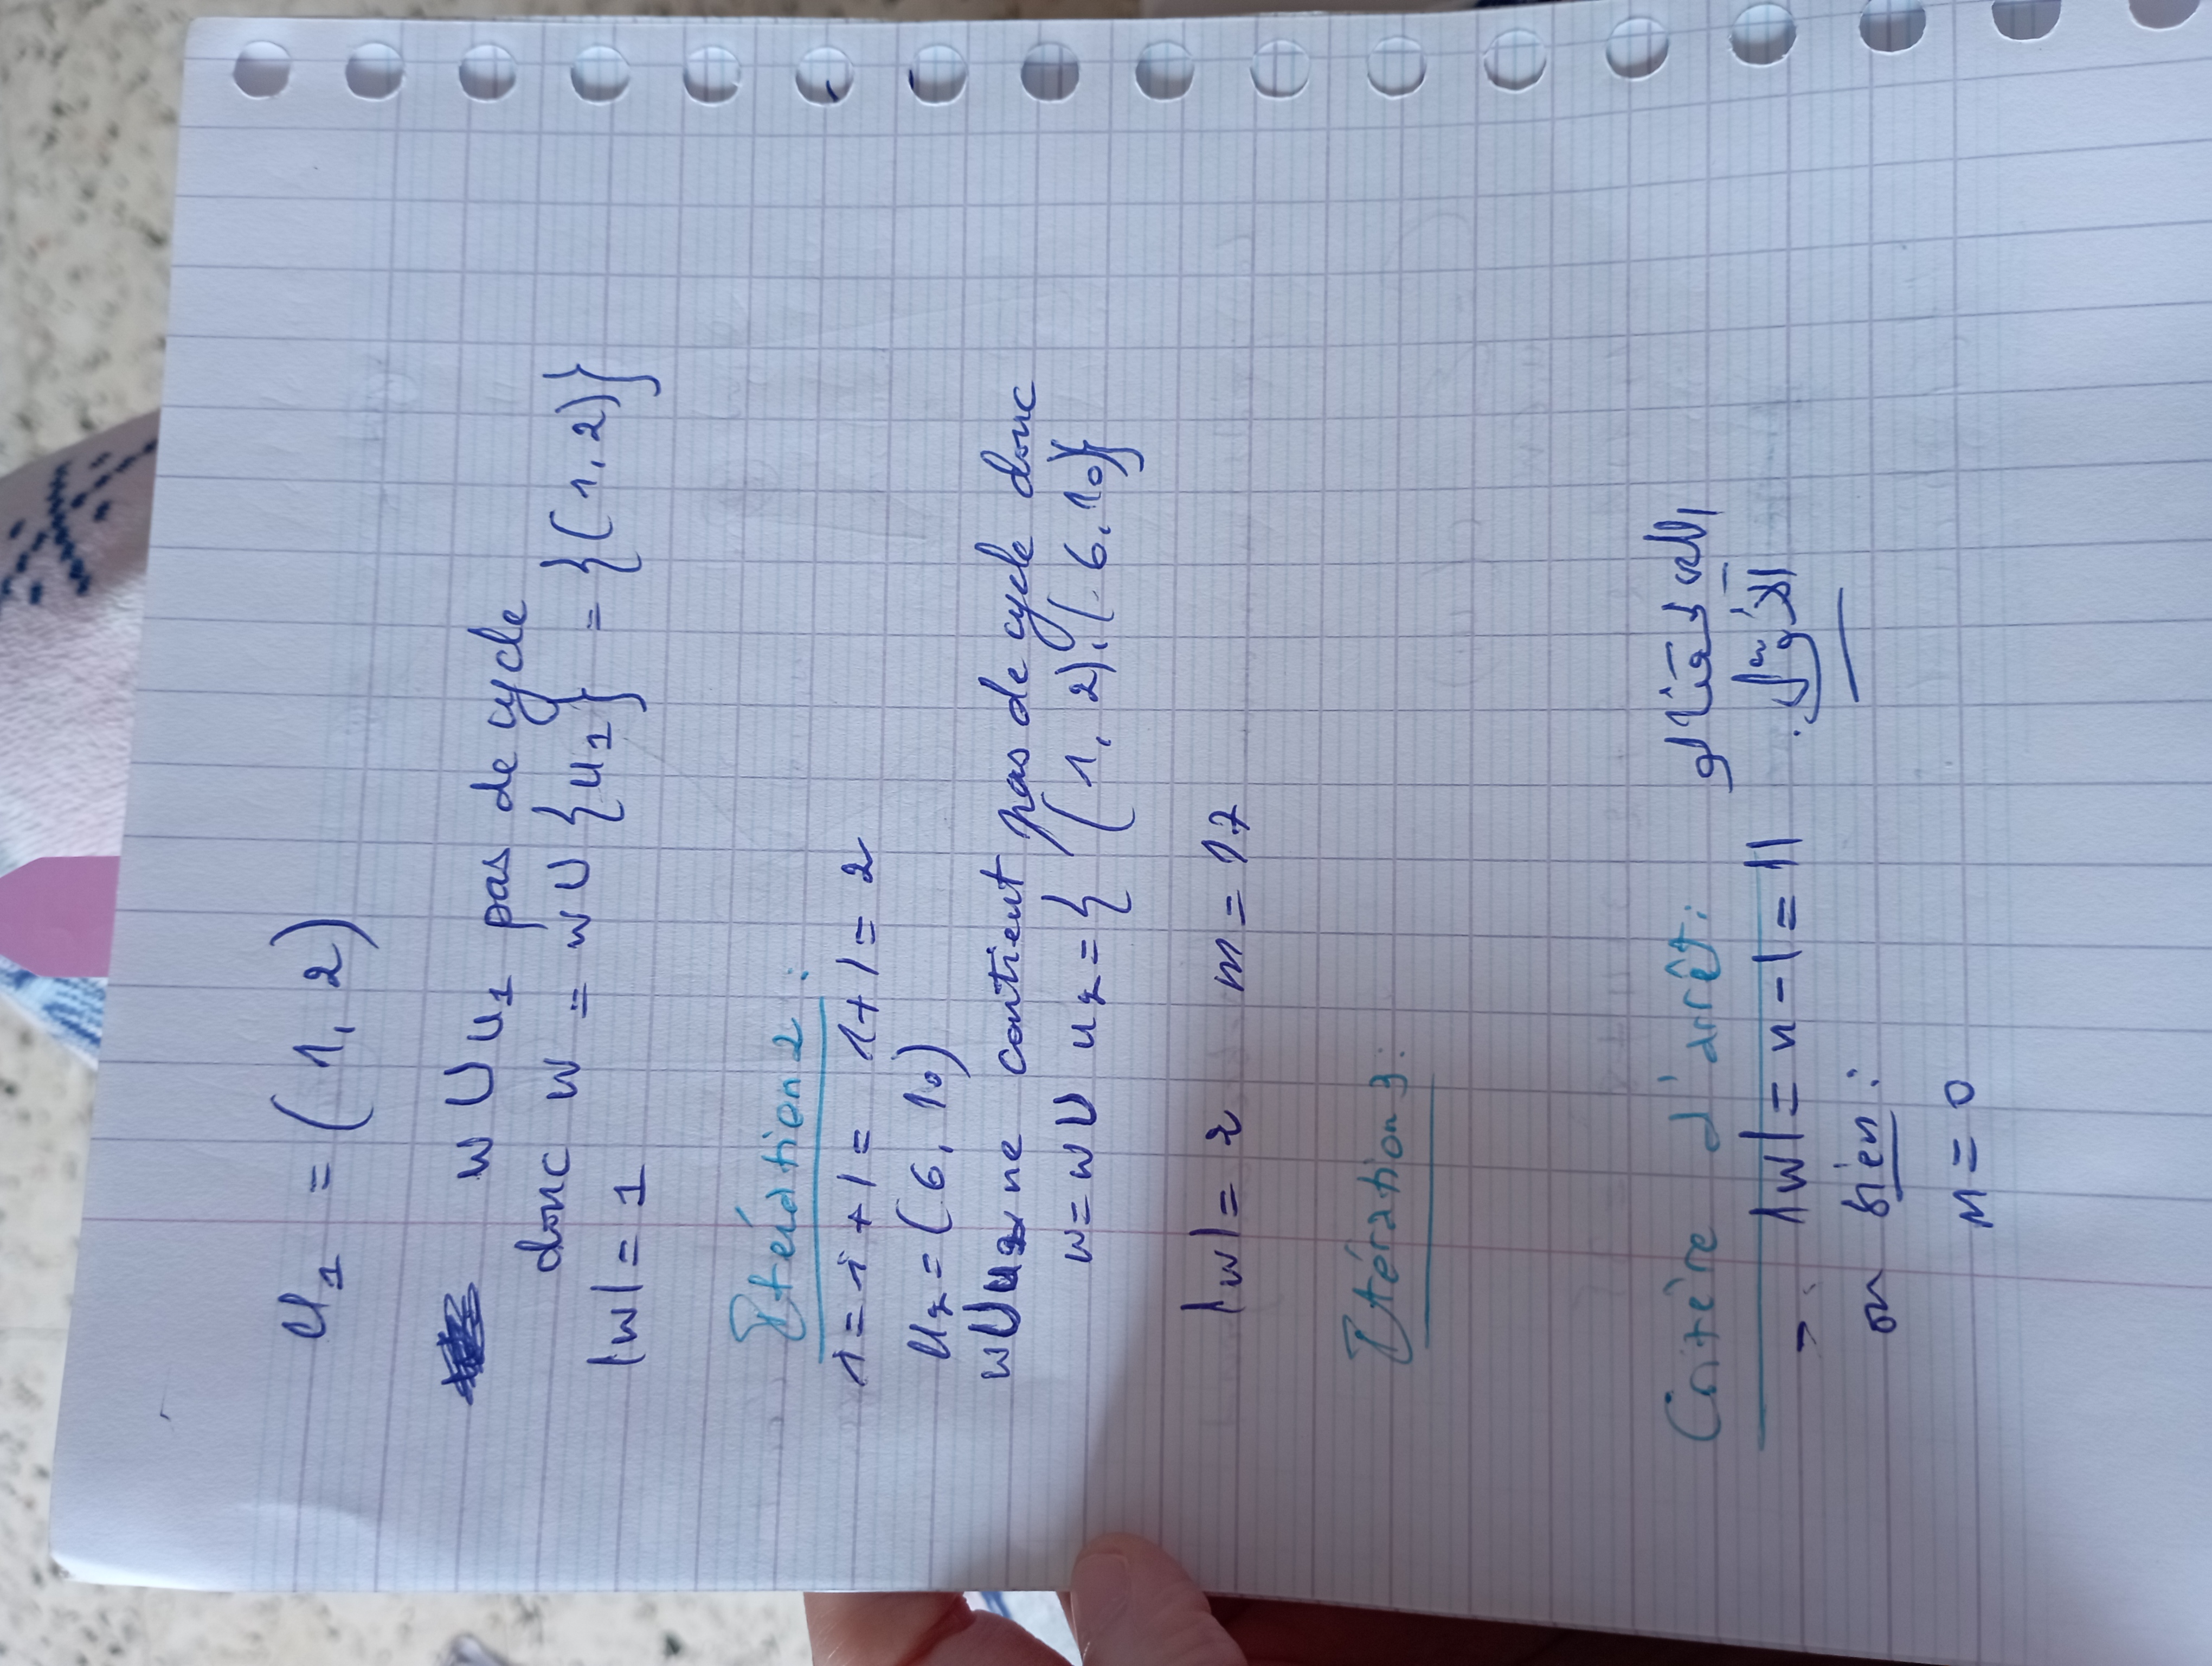 u₁ = (1, 2)
w ∪ u₁ pas de cycle
donc w = w ∪ {u₁} = {(1, 2)}
|w| = 1
Itération 2 :
i = i + 1 = 1 + 1 = 2
u₂ = (6, 10)
w ∪ u₂ ne contient pas de cycle donc
w = w ∪ u₂ = { (1, 2), (6, 10)}
|w| = 2 m = 17
Itération 3 :
Critère d'arrêt : اللي لحقنا لو
|w| = n - 1 = 11 الأوّل.
ou bien :
M = 0